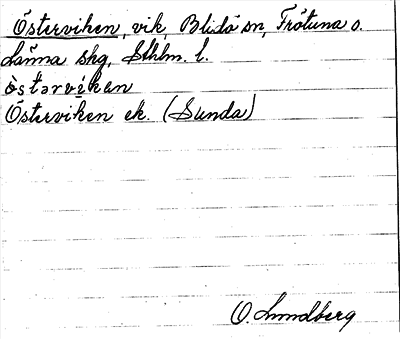 Österviken, vik, Blidö sn, Frötuna o.
Länna skg, Sthlm. l.
ö̀stərvi̇́kən
Österviken ek. (Sunda)
O. Lundberg